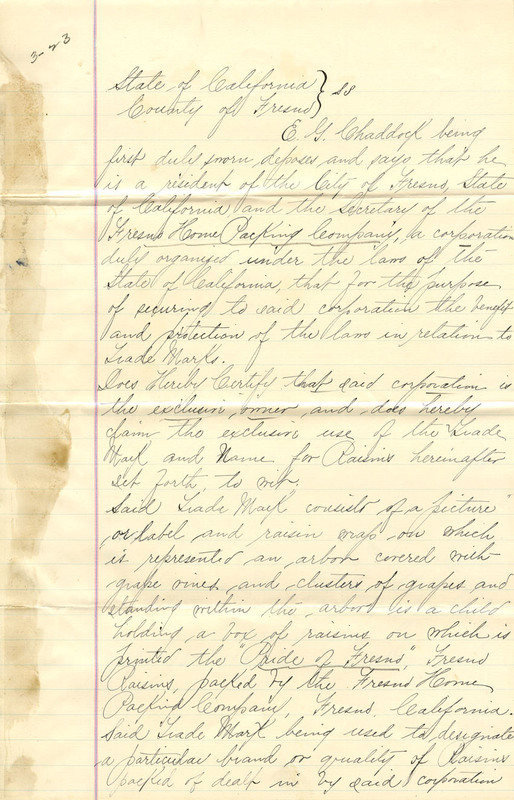 3-23
State of California } SS
County of Fresno
E. G. Chaddock being
first duly sworn deposes and says that he
is a resident of the City of Fresno, State
of California and the Secretary of the
Fresno Home Packing Company, a corporation
duly organized under the laws of the
State of California, that for the purpose
of securing to said corporation the benefit
and protection of the laws in relation to
Trade Marks.
Does Hereby Certify that said corporation is
the exclusive owner and does hereby
claim the exclusive use of the Trade
Mark and Name for Raisins hereinafter
set forth, to wit.
Said Trade Mark consists of a picture
or label and raisin wrap on which
is represented an arbor covered with
grape vines, and clusters of grapes and
standing within the arbor is a child
holding a box of raisins on which is
printed the "Pride of Fresno", Fresno
Raisins, packed by the Fresno Home
Packing Company, Fresno, California.
Said Trade Mark being used to designate
a particular brand or quality of Raisins
packed or dealt in by said corporation